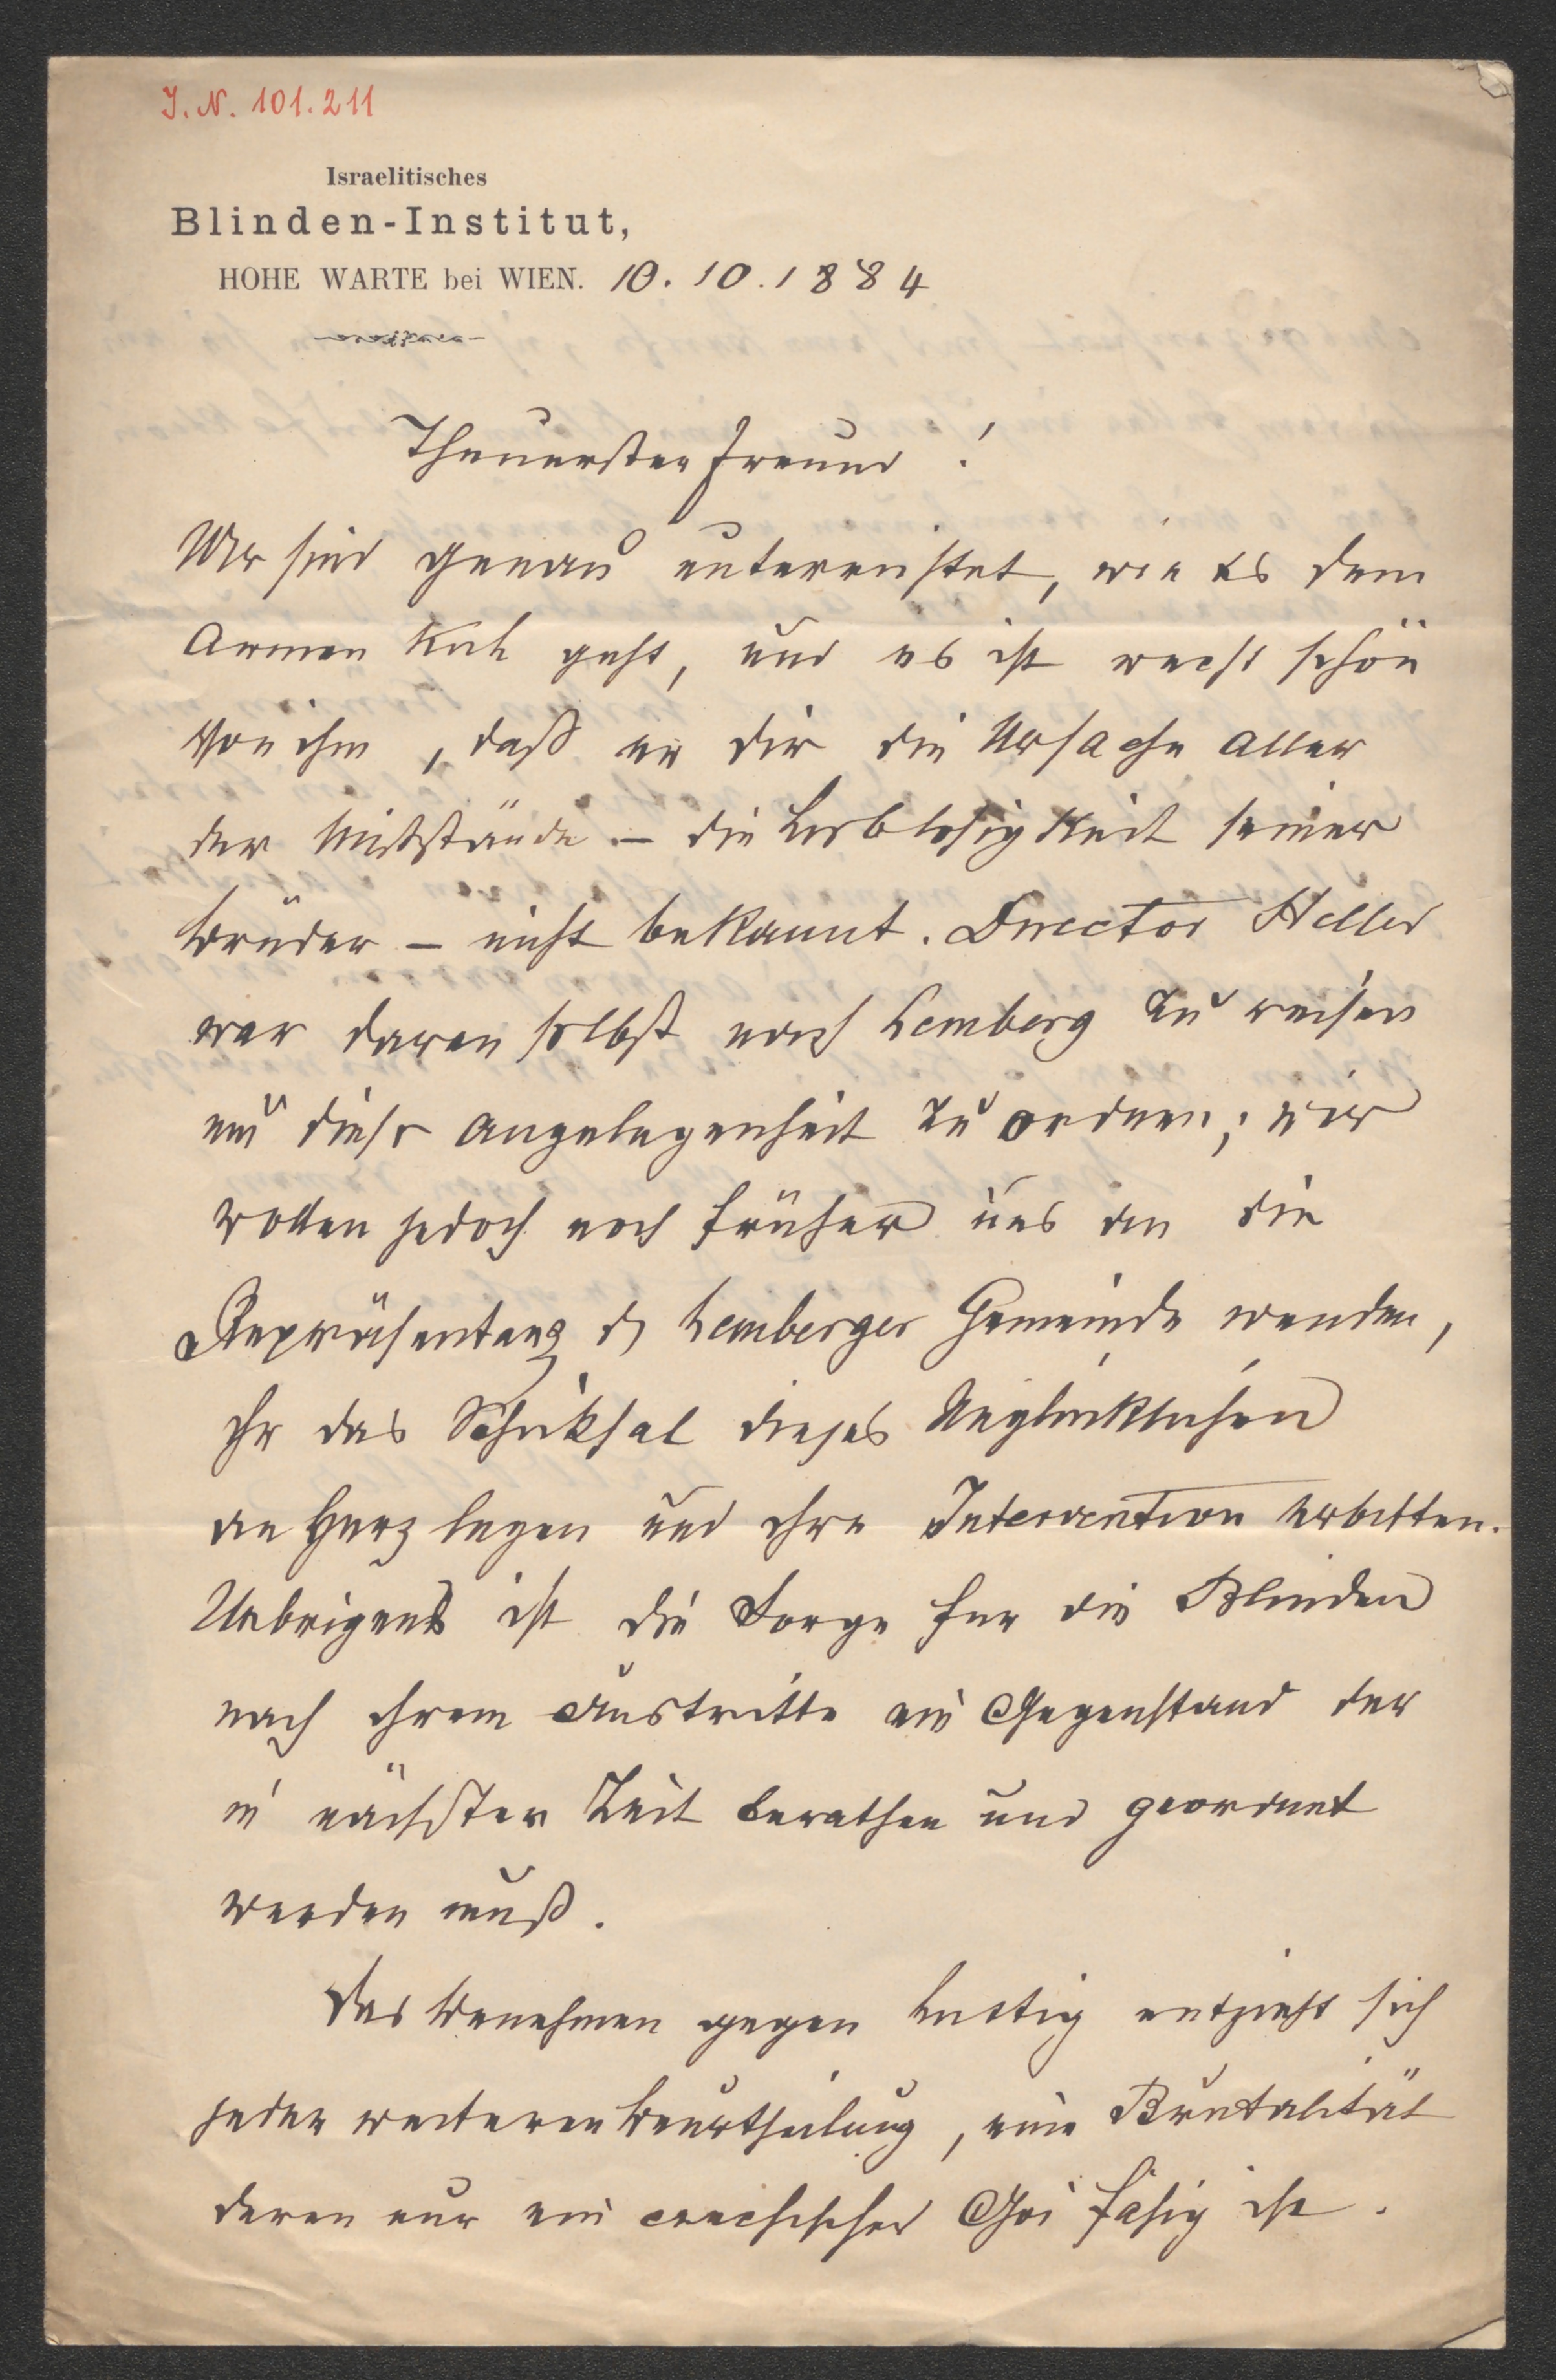 J. N. 101.211
Israelitisches
Blinden-Institut,
HOHE WARTE bei WIEN. 10. 10. 1884
Theuerster Freund!
Wir sind genau unterrichtet, wie es dem
armen Kuh geht, und es ist recht schön
von ihm, daß er dir die Ursache aller
der Mißstände – die Lieblosigkeit seiner
Brüder – nicht bekannt. Director Heller
war daran selbst nach Lemberg zu reisen
um diese Angelegenheit zu ordnen; wir
wollen jedoch noch früher uns an die
Repräsentanz d. Lemberger Gemeinde wenden,
ihr das Schicksal dieses Unglücklichen
an Herz legen und ihre Intervention erbitten.
Uebrigens ist die Sorge für die Blinden
nach ihrem Austritte ein Gegenstand der
in nächster Zeit berathen und geordnet
werden muß.
Das Benehmen gegen Lustig entzieht sich
jeder weiteren Beurtheilung, eine Brutalität
deren nur ein czechischer Goi fähig ist.